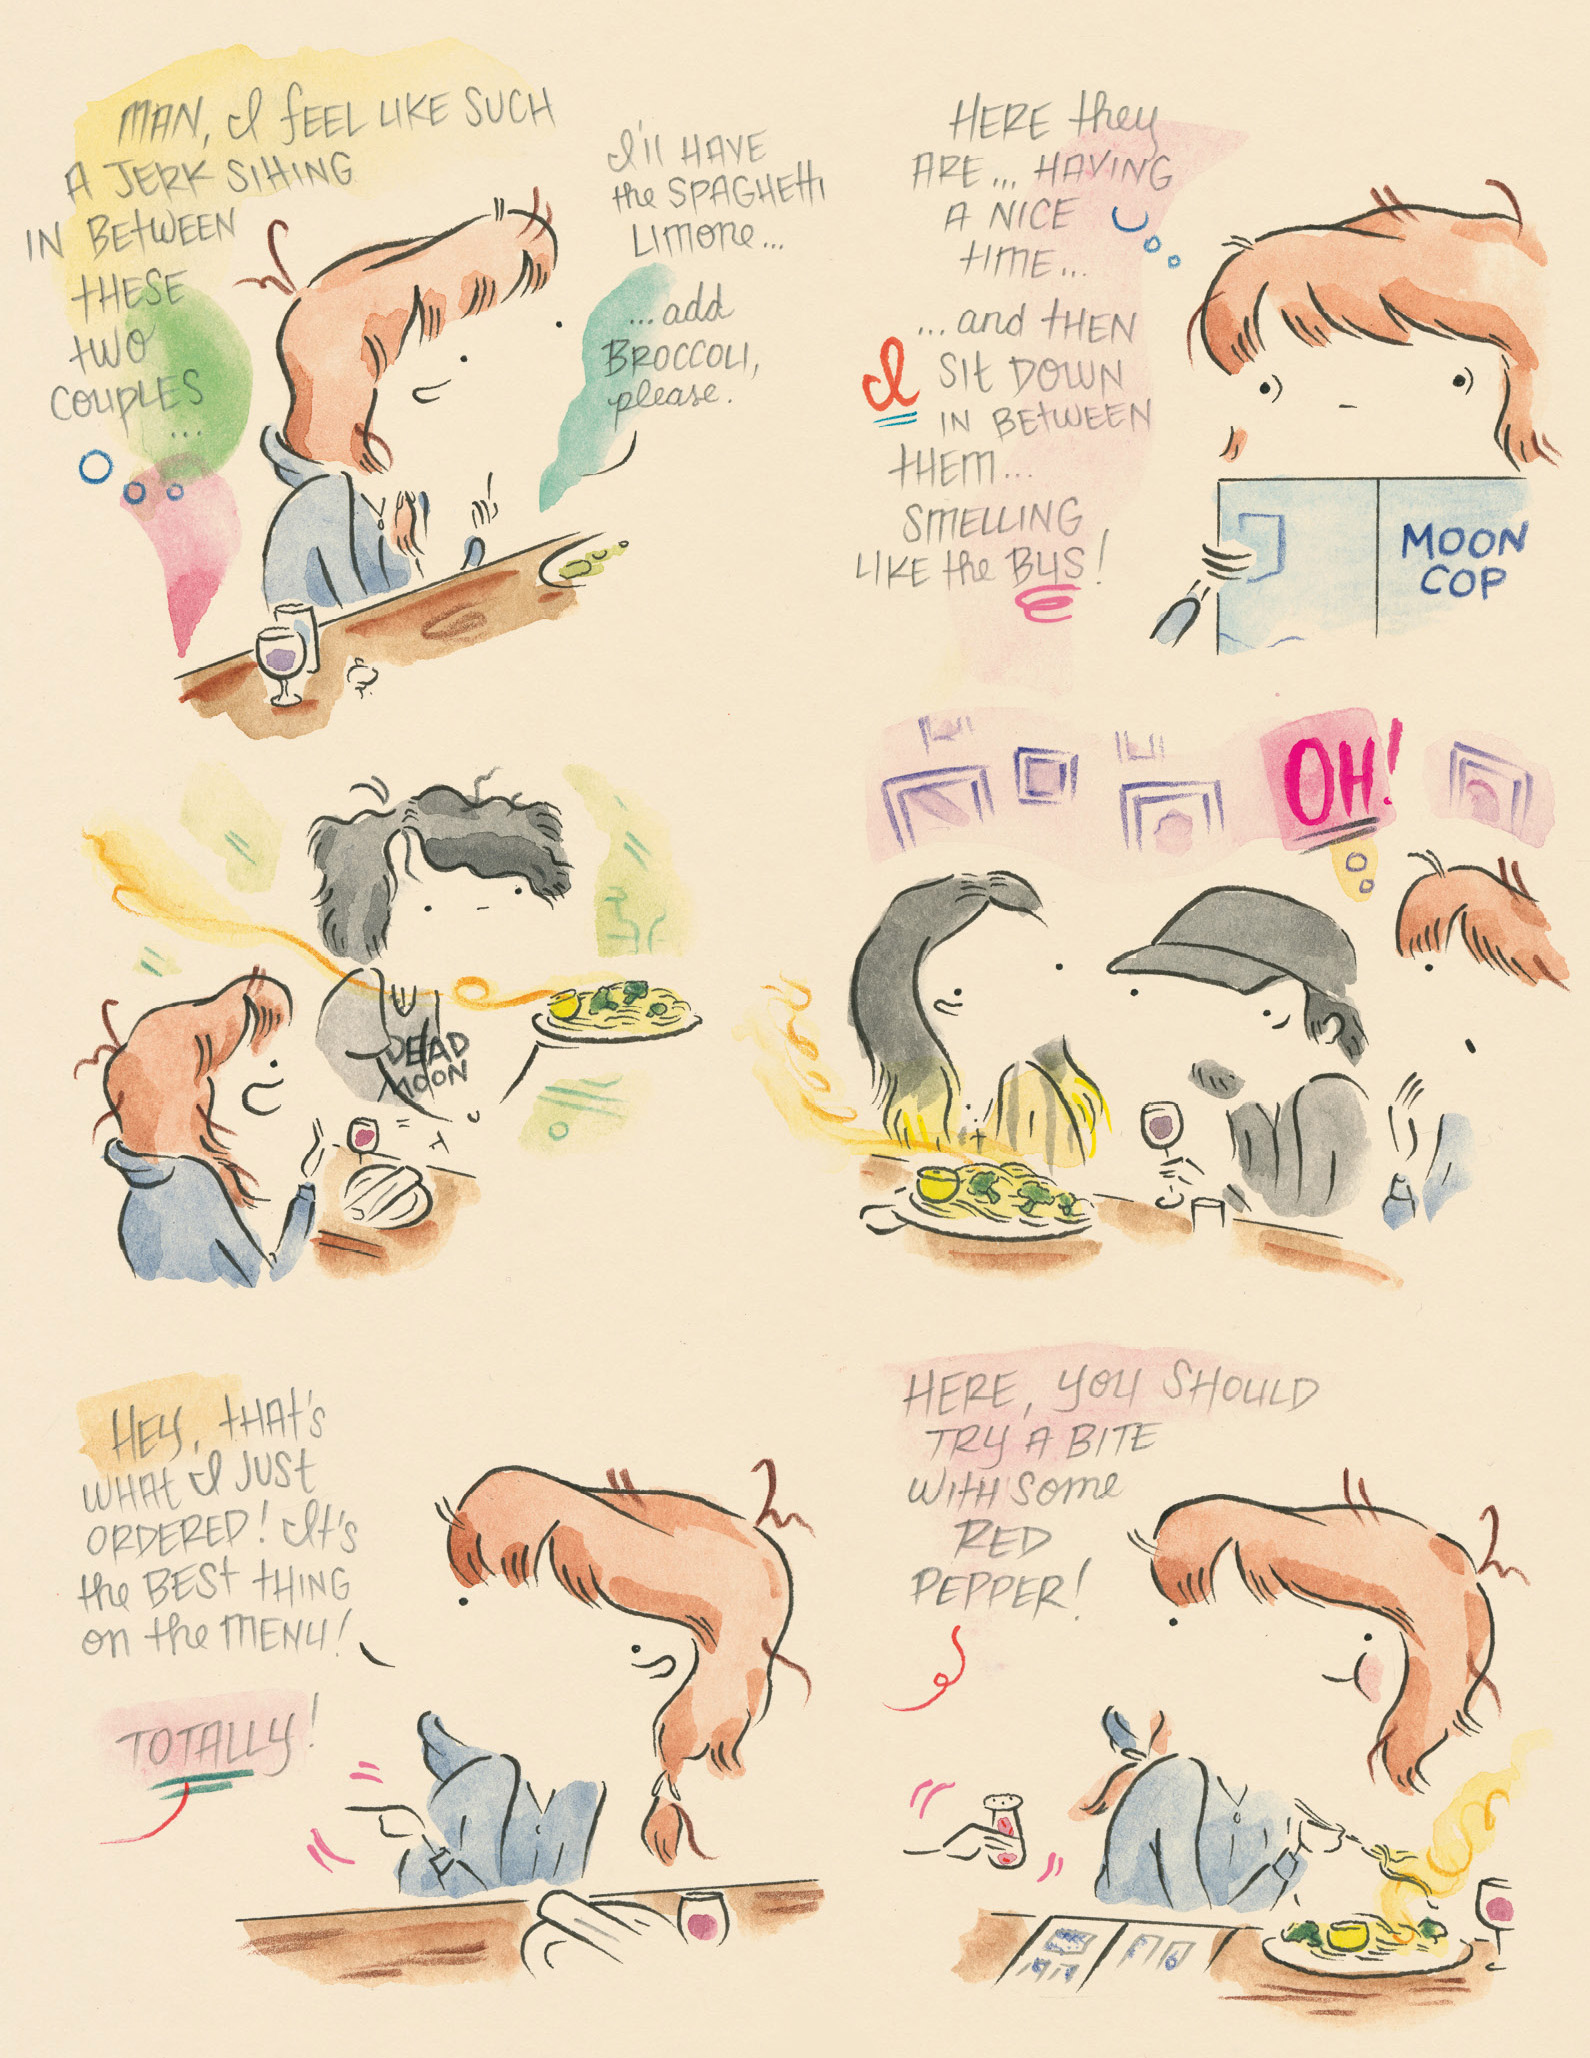 MAN, I FEEL LIKE SUCH
A JERK SITTING
IN BETWEEN
THESE
TWO
COUPLES
...
I'll HAVE
the SPAGHETTI
LIMONE...
...add
BROCCOLI,
please.
HERE they
ARE... HAVING
A NICE
TIME...
...and THEN
I SIT DOWN
IN BETWEEN
THEM...
SMELLING
LIKE the BUS!
MOON
COP
DEAD
MOON
OH!
HEY, THAT'S
WHAT I JUST
ORDERED! It's
the BEST THING
on the MENU!
TOTALLY!
HERE, YOU SHOULD
TRY A BITE
WITH Some
RED
PEPPER!